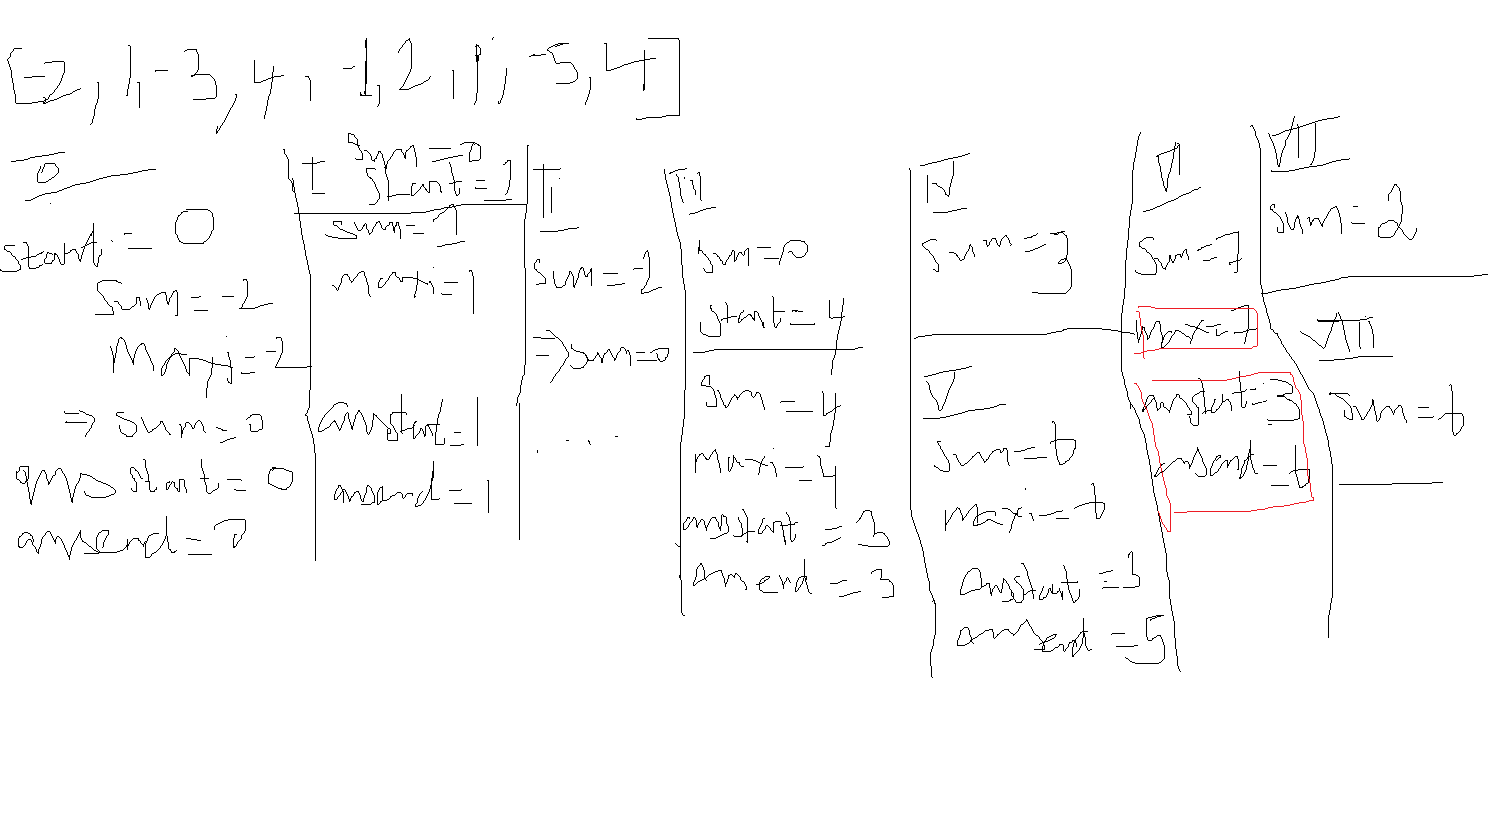 [-2, 1, -3, 4, -1, 2, 1, -5, 4]
0
start = 0
sum = -2
maxi = -2
=> sum = 0
ans start = 0
ansend = 0
I
sum = 0
start = 1
sum = 1
maxi = 1
ansstart = 1
ansend = 1
II
sum = -2
=> sum = 0
. . . .
III
sum = 0
start = 4
sum = 4
maxi = 4
ansstart = 3
ansend = 3
IV
sum = 3
V
sum = 6
maxi = 6
ansstart = 3
ansend = 5
VI
sum = 7
maxi = 7
ansstart = 3
ansend = 6
VII
sum = 2
VIII
sum = 6